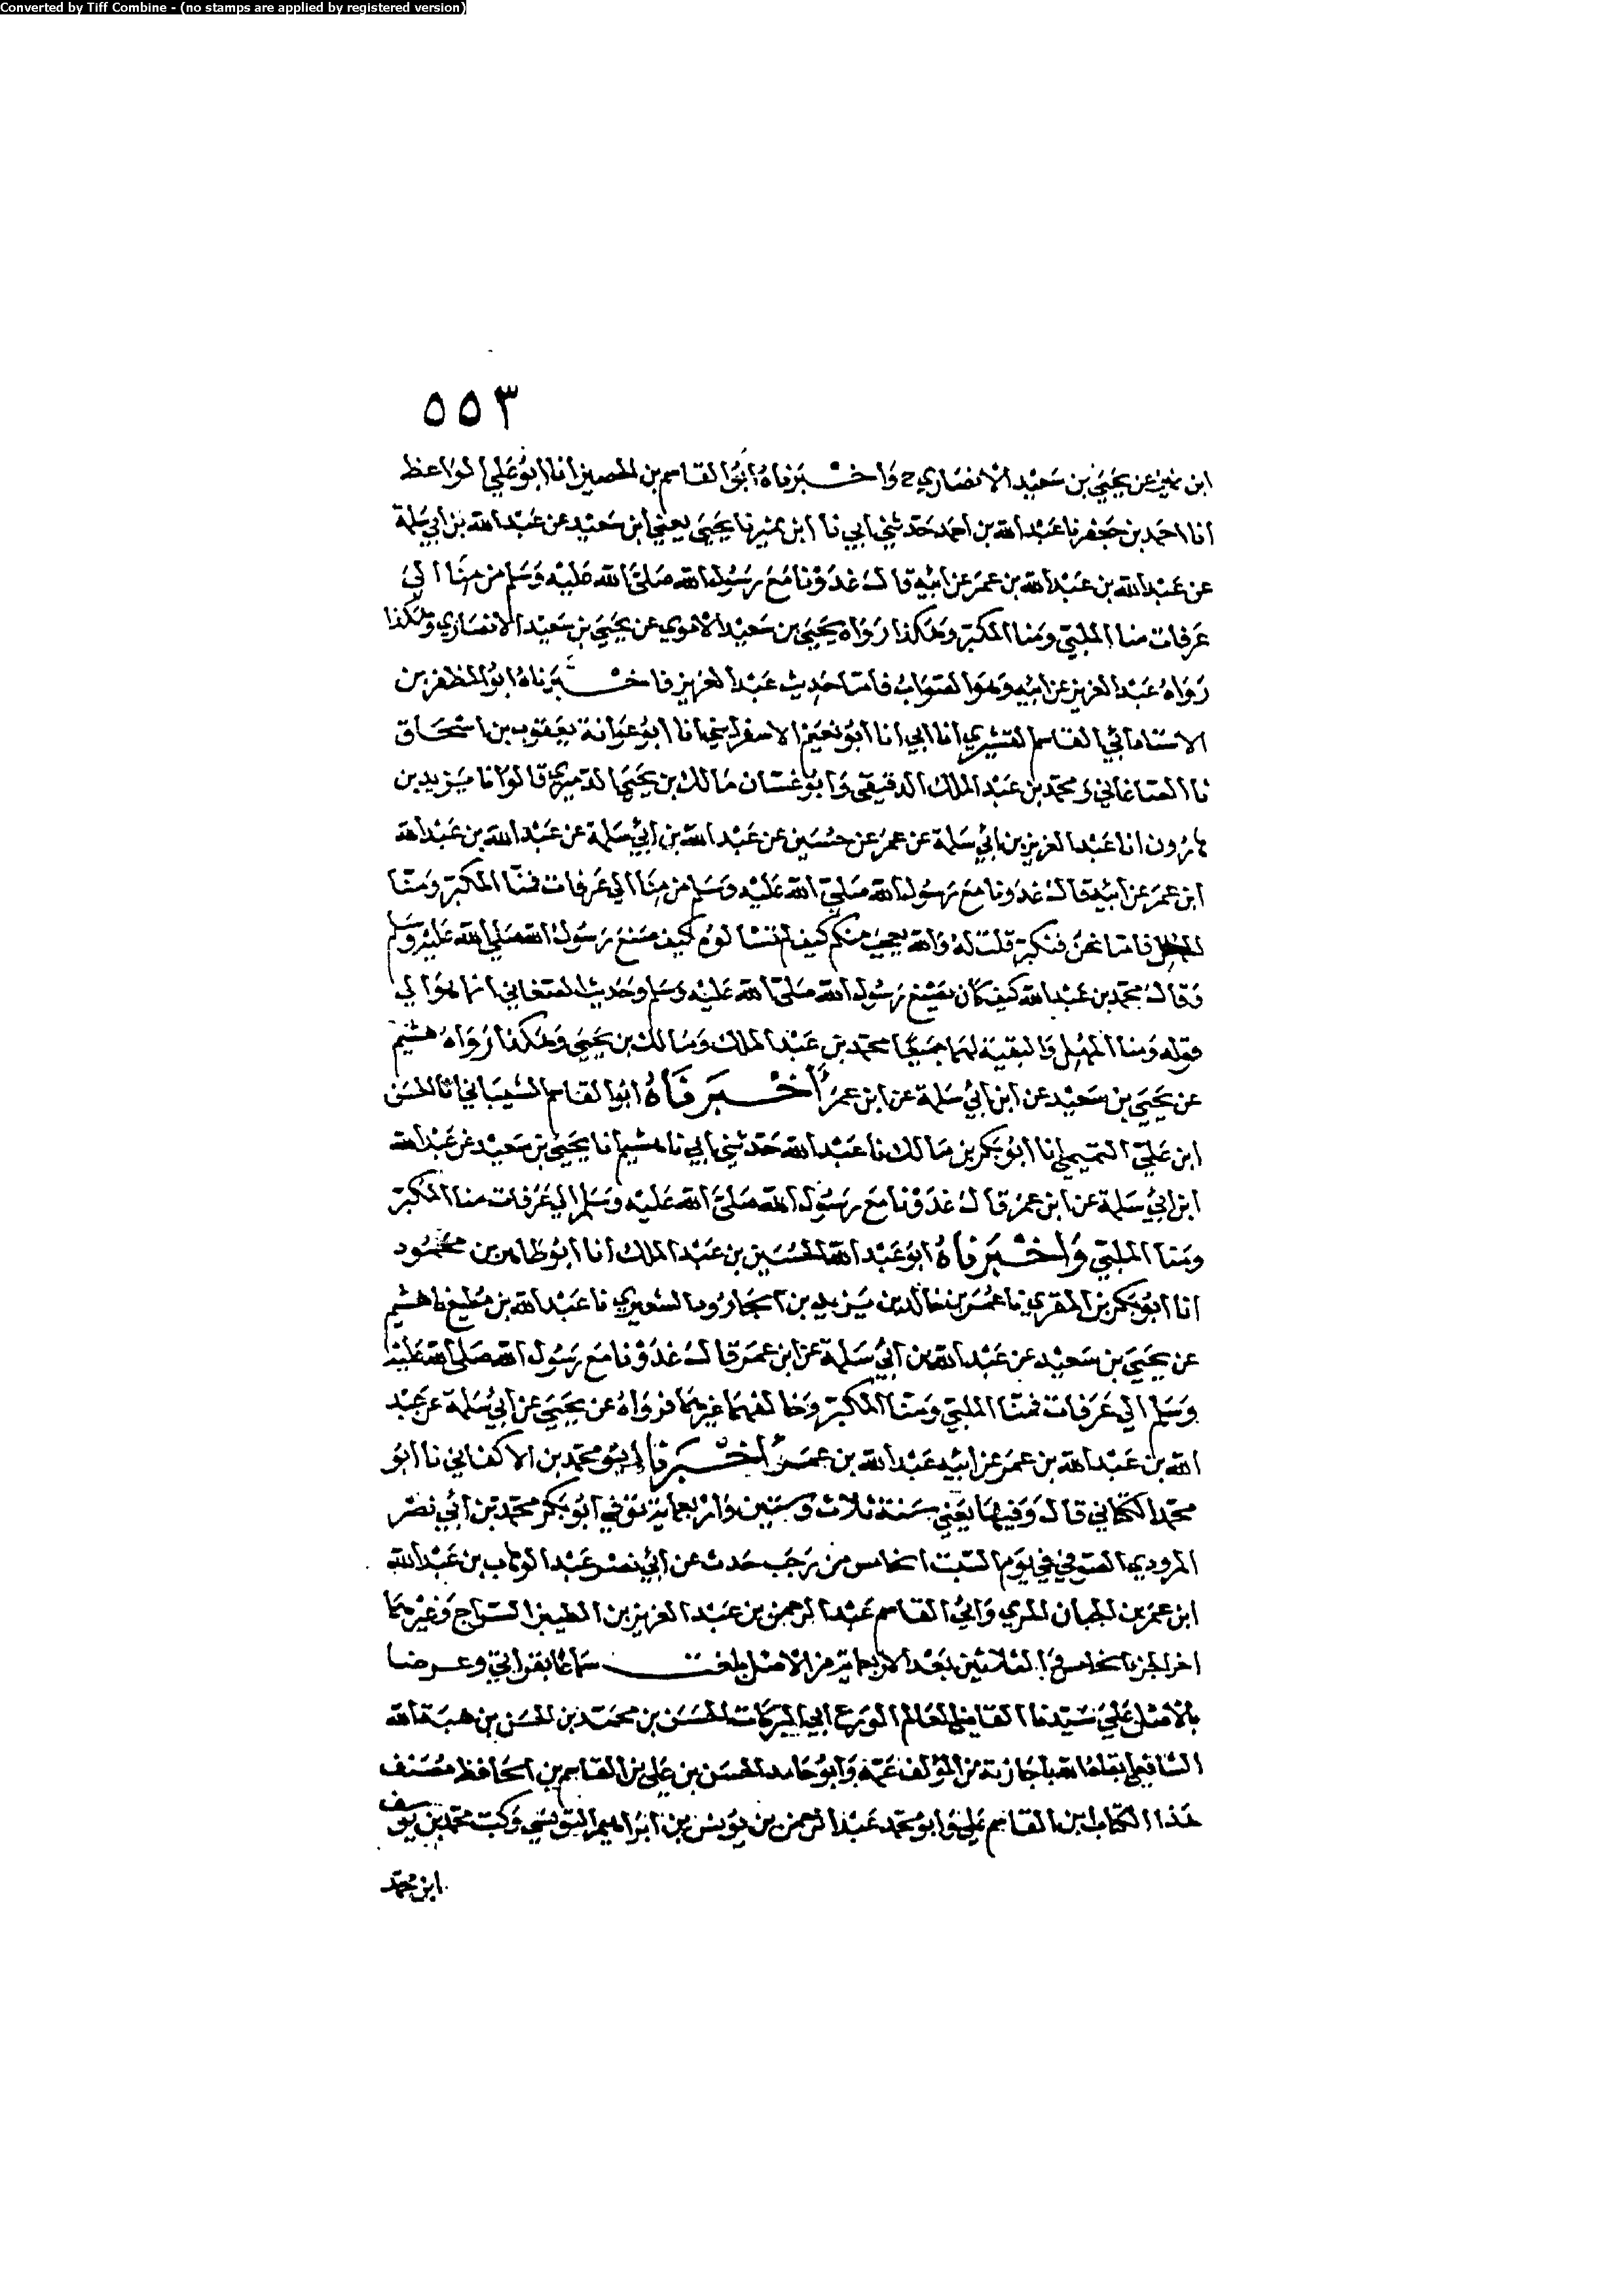 Converted by Tiff Combine - (no stamps are applied by registered version)
٥٥٣
ابن نمير عن يحيى بن سعيد الانصاري ح وَاخْبَرناه ابو القاسم بن الحصين انا ابو علي الواعظ
انا احمد بن جعفر نا عبد الله بن احمد حدثني ابي نا ابن نمير نا يحيى يعني ابن سعيد عن عبد الله بن ابي سلمة
عن عبد الله بن عبد الله بن عمر عن ابيه قال غدونا مع رسول الله صلى الله عليه وسلم من منا الى
عرفات منا الملبي ومنا المكبر وهكذا رواه يحيى بن سعيد الاموي عن يحيى بن سعيد الانصاري وهكذا
رواه عبد العزيز عن ابيه وهو الصواب فاما حديث عبد العزيز فاخبرناه ابو المظفر بن
الاستاذ ابي القاسم القشيري انا ابي انا ابو نعيم الاسفرايني انا ابو عوانة يعقوب بن اسحاق
نا الصاغاني ومحمد بن عبد الملك الدقيقي وابو غسان مالك بن يحيى قالوا نا يزيد بن
هارون انا عبد العزيز بن ابي سلمة عن عمر عن حسين عن عبد الله بن ابي سلمة عن عبد الله بن عبد الله
ابن عمر عن ابيه قال غدونا مع رسول الله صلى الله عليه وسلم من منا الى عرفات فمنا المكبر ومنا
فاما نحن فنكبر قلت له والله يعجب منكم كيف لم تسالوه كيف صنع رسول الله صلى الله عليه وسلم
وقال محمد بن عبد الله كيف كان يصنع رسول الله صلى الله عليه وسلم وحديث الصغاني انما هو الى
قوله ومنا المهل والبقية لهما جميعا محمد بن عبد الملك ومالك بن يحيى وهكذا رواه هشيم
عن يحيى بن سعيد عن ابن ابي سلمة عن ابن عمر اخبرناه ابو القاسم الشيباني انا الحسن
ابن علي التميمي انا ابو بكر بن مالك نا عبد الله حدثني ابي نا هشيم انا يحيى بن سعيد عن عبد الله
ابن ابي سلمة عن ابن عمر قال غدونا مع رسول الله صلى الله عليه وسلم الى عرفات منا المكبر
ومنا الملبي واخبرناه ابو عبد الله الحسين بن عبد الملك انا ابو طاهر بن محمود
انا ابو بكر بن المقري نا عمر بن خالد بن يزيد بن الجارود الشعيري نا عبد الله بن مطيع نا هشيم
عن يحيى بن سعيد عن عبد الله بن ابي سلمة عن ابن عمر قال غدونا مع رسول الله صلى الله عليه
وسلم الى عرفات فمنا الملبي ومنا المكبر وخالفهما غيرهما فرواه عن يحيى عن ابي سلمة عن عبد
الله بن عبد الله بن عمر عن ابيه عبد الله بن عمر اخبرنا ابو محمد بن الاكفاني نا ابو
محمد الكتاني قال وفيها يعني سنة ثلاث وستين واربعماية توفي ابو بكر محمد بن ابي نصر
المروذي الصوفي في يوم السبت الخامس من رجب حدث عن ابي نصر عبد الوهاب بن عبد الله
ابن عمر بن الجبان المري وابي القاسم عبد الرحمن بن عبد العزيز بن الطبيز السراج وغيرهما
اخر الجزء الخامس والثلاثين بعد الاربعماية من الاصل بلغت سماعا بقراتي وعرضا
بالاصل على سيدنا القاضي العالم الورع ابي البركات الحسن بن محمد بن الحسن بن هبة الله
الشافعي اجازته من المؤلف عمه وابو حامد الحسن بن علي بن القاسم بن الحافظ مصنف
هذا الكتاب ابن القاسم علي وابو محمد عبد الرحمن بن يونس بن ابراهيم التونسي وكتب محمد بن يوسف
ابن محمد